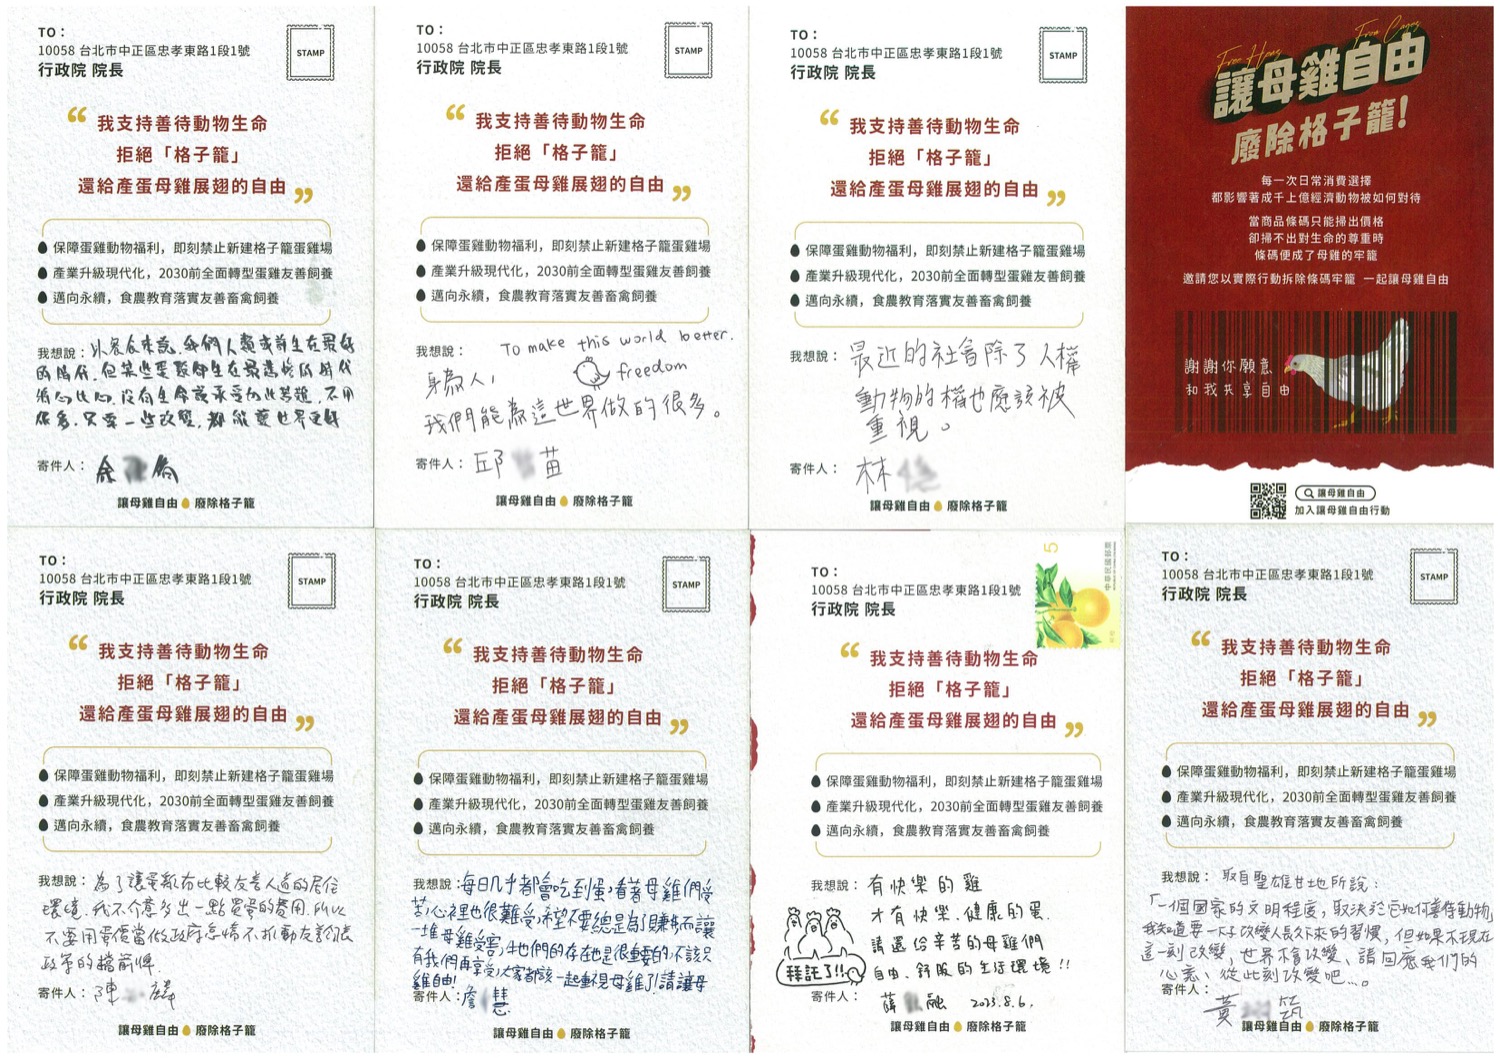 TO：
10058 台北市中正區忠孝東路1段1號
行政院 院長
STAMP
“ 我支持善待動物生命
拒絕「格子籠」
還給產蛋母雞展翅的自由 ”
保障蛋雞動物福利，即刻禁止新建格子籠蛋雞場
產業升級現代化，2030前全面轉型蛋雞友善飼養
邁向永續，食農教育落實友善畜禽飼養
我想說：
只要一些改變，都能讓世界更好
寄件人：余
讓母雞自由 廢除格子籠
TO：
10058 台北市中正區忠孝東路1段1號
行政院 院長
STAMP
“ 我支持善待動物生命
拒絕「格子籠」
還給產蛋母雞展翅的自由 ”
保障蛋雞動物福利，即刻禁止新建格子籠蛋雞場
產業升級現代化，2030前全面轉型蛋雞友善飼養
邁向永續，食農教育落實友善畜禽飼養
我想說： To make this world better.
身為人， freedom
我們能為這世界做的很多。
寄件人：邱 苗
讓母雞自由 廢除格子籠
TO：
10058 台北市中正區忠孝東路1段1號
行政院 院長
STAMP
“ 我支持善待動物生命
拒絕「格子籠」
還給產蛋母雞展翅的自由 ”
保障蛋雞動物福利，即刻禁止新建格子籠蛋雞場
產業升級現代化，2030前全面轉型蛋雞友善飼養
邁向永續，食農教育落實友善畜禽飼養
我想說：最近的社會除了人權
動物的權也應該被
重視。
寄件人：林
讓母雞自由 廢除格子籠
Free Hens Free Cages
讓母雞自由
廢除格子籠!
每一次日常消費選擇
都影響著成千上億經濟動物被如何對待
當商品條碼只能掃出價格
卻掃不出對生命的尊重時
條碼便成了母雞的牢籠
邀請您以實際行動拆除條碼牢籠 一起讓母雞自由
謝謝你願意
和我共享自由
讓母雞自由
加入讓母雞自由行動
TO：
10058 台北市中正區忠孝東路1段1號
行政院 院長
STAMP
“ 我支持善待動物生命
拒絕「格子籠」
還給產蛋母雞展翅的自由 ”
保障蛋雞動物福利，即刻禁止新建格子籠蛋雞場
產業升級現代化，2030前全面轉型蛋雞友善飼養
邁向永續，食農教育落實友善畜禽飼養
我想說：為了讓蛋雞有比較友善人道的居住
環境，我不介意多出一點買蛋的費用。所以
不要用蛋價當做政府怠惰不推動友善
政策的擋箭牌.
寄件人：陳 麟
讓母雞自由 廢除格子籠
TO：
10058 台北市中正區忠孝東路1段1號
行政院 院長
STAMP
“ 我支持善待動物生命
拒絕「格子籠」
還給產蛋母雞展翅的自由 ”
保障蛋雞動物福利，即刻禁止新建格子籠蛋雞場
產業升級現代化，2030前全面轉型蛋雞友善飼養
邁向永續，食農教育落實友善畜禽飼養
我想說：每日几乎都會吃到蛋，看著母雞們受
苦，心裡也很難受，希望不要總是為了賺錢而讓
一堆母雞受害，牠們的存在也是很重要的，不該只
有我們再享受，大家都該一起重視母雞了!請讓母
雞自由!
寄件人：詹 慧
讓母雞自由 廢除格子籠
TO：
10058 台北市中正區忠孝東路1段1號
行政院 院長
5
“ 我支持善待動物生命
拒絕「格子籠」
還給產蛋母雞展翅的自由 ”
保障蛋雞動物福利，即刻禁止新建格子籠蛋雞場
產業升級現代化，2030前全面轉型蛋雞友善飼養
邁向永續，食農教育落實友善畜禽飼養
我想說：有快樂的雞
才有快樂、健康的蛋.
請還給辛苦的母雞們
自由、舒服的生活環境!!
拜託了!!
寄件人：薛 融 2023.8.6.
讓母雞自由 廢除格子籠
TO：
10058 台北市中正區忠孝東路1段1號
行政院 院長
STAMP
“ 我支持善待動物生命
拒絕「格子籠」
還給產蛋母雞展翅的自由 ”
保障蛋雞動物福利，即刻禁止新建格子籠蛋雞場
產業升級現代化，2030前全面轉型蛋雞友善飼養
邁向永續，食農教育落實友善畜禽飼養
我想說：取自聖雄甘地所說：
「一個國家的文明程度，取決於它如何善待動物」
我知道要一下子改變人長久下來的習慣，但如果不現在
這一刻改變，世界不會改變、請回應我們的
心意、從此刻改變吧...。
寄件人：黃 筑
讓母雞自由 廢除格子籠